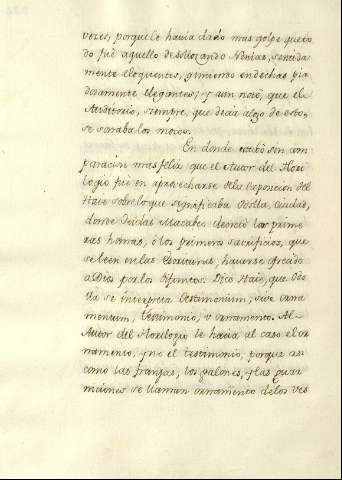 vezes, porque le havia dado mas golpe que to
do fué aquello de llorando Nenias, sentida
mente eloquentes, gimiendo endechas pia
dosamente elegantes; y aun notó, que el
Auditorio, siempre, que decia algo de esto,
se sonaba los mocos.
En donde estubo sin com
paracion mas feliz que el Autor del Flori
legio fué en aprovecharse de la exposicion del
Haie sobre lo que significaba Odolla, ciudad,
donde Judas Macabeo decretó las prime
ras honras, ò los primeros sacrificios, que
se leen en las Escrituras, haverse ofrecido
a Dios por los Difuntos. Dice Haie, que Odo
lla se interpreta Testimonium, sive orna
mentum, testimonio, u ornamento. Al
Autor del Florilogio le hacia al caso el or
namento, y no el testimonio, porque asi
como las franjas, los galones, y las guar
niciones se llaman ornamento de los ves